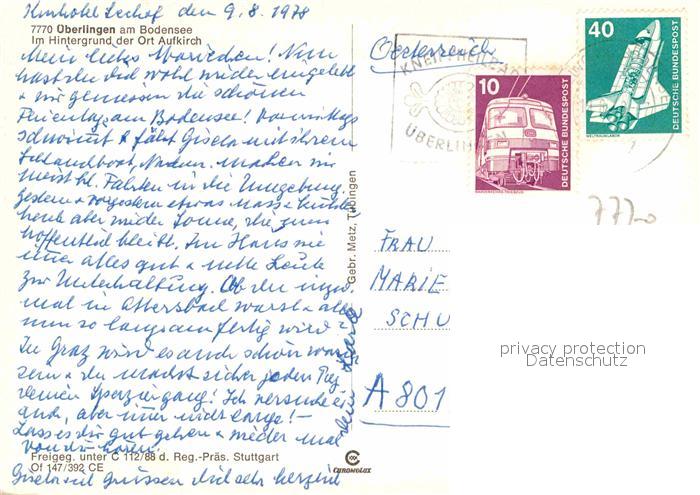 Kurhotel Seehof den 9.8.1978
7770 Überlingen am Bodensee
Im Hintergrund der Ort Aufkirch
Mein liebes Mariechen! Nun
hast du dich wohl wieder eingelebt
+ wir geniessen die schönen
Ferientage am Bodensee! Vormittags
schwimmt + fährt Gisela mit ihrem
Schlauchboot, Nachm. machen wir
meist kl. Fahrten in die Umgebung.
Gestern + vorgestern etwas nass + kühler
heute aber wieder Sonne, die zum
hoffentlich bleibt. Im Haus wie
immer alles gut + nette Leute
zur Unterhaltung. Ob du
mal in warst + alles
nun so langsam fertig wird?
In Graz wird es auch schön warm
sein + du machst sicher jeden Tag
deinen Spaziergang! Ich versuche es
auch, aber immer nicht lange! -
Lasse es dir gut gehen + wieder mal
von dir hören.
Freigeg. unter C 112/88 d. Reg.-Präs. Stuttgart
Of 147/392 CE
Gisela und grüssen dich sehr herzlich
deine
Gebr. Metz, Tübingen
CHROMOLUX
Oesterreich
KNEIPPHEILBAD
ÜBERLINGEN
10
DEUTSCHE BUNDESPOST
40
DEUTSCHE BUNDESPOST
WELTRAUMLABOR
7770
FRAU
MARIE
SCHU
A 801
privacy protection
Datenschutz